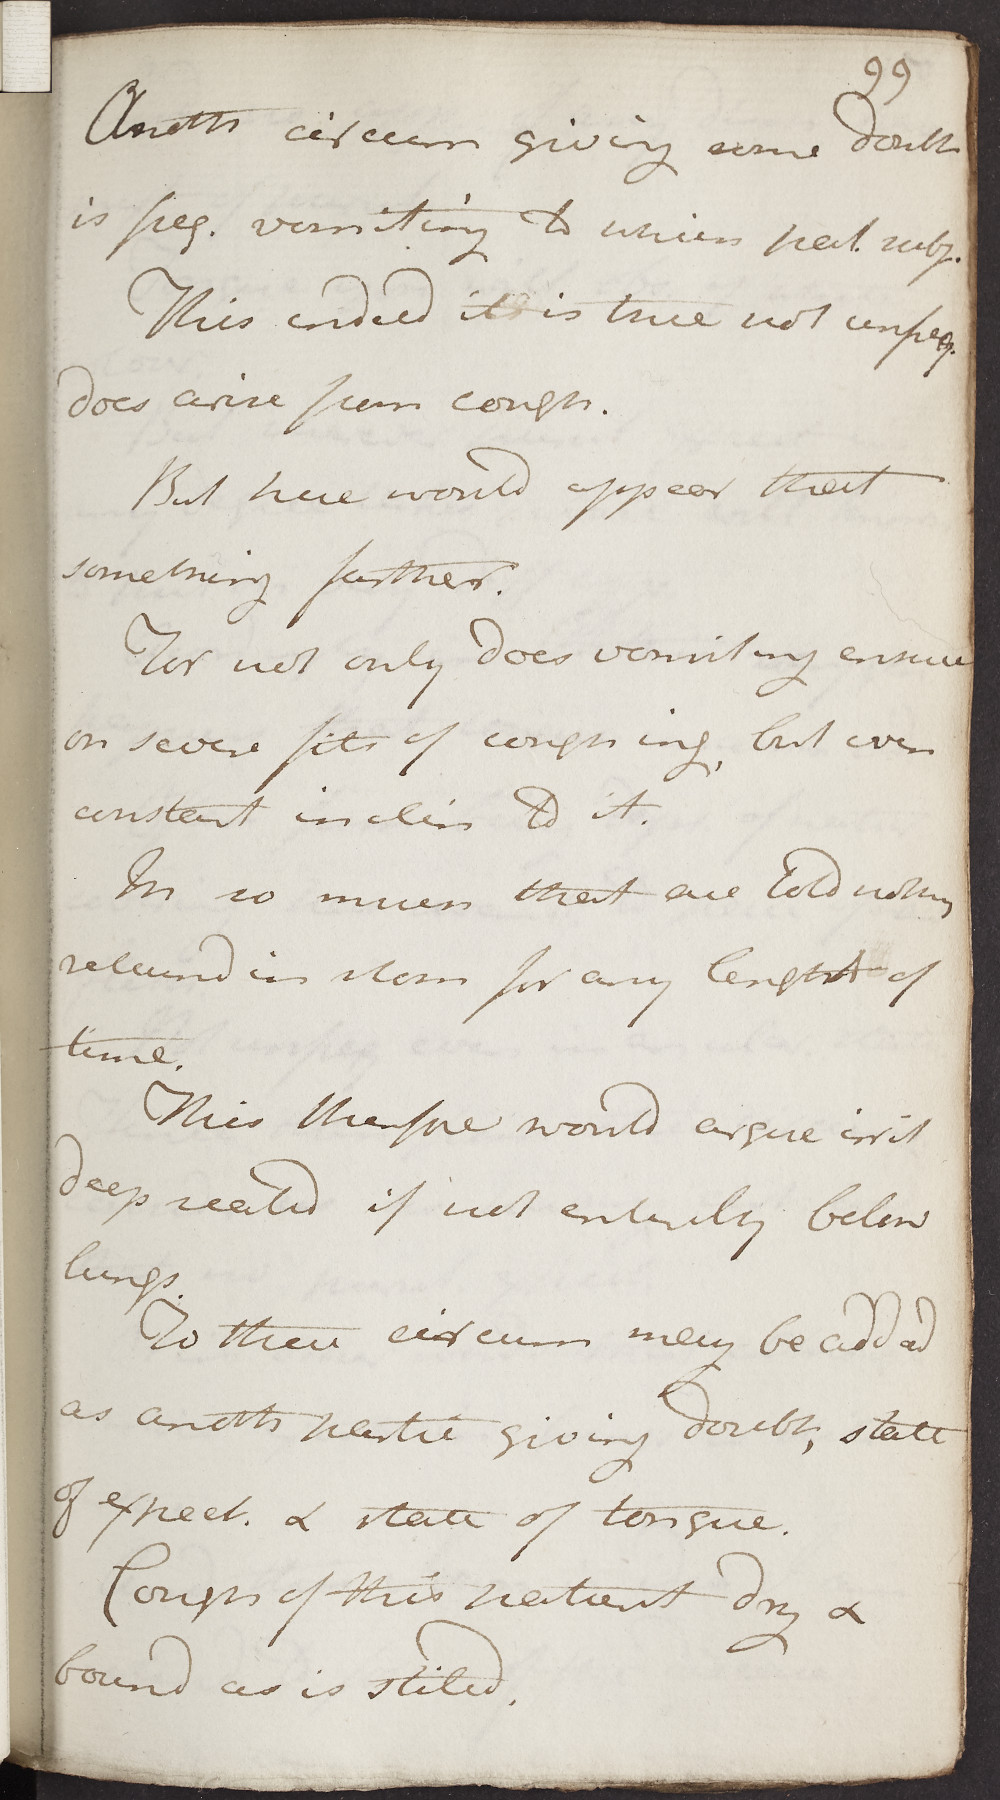 99
Anothr circum giving some doubt
is freq. vomiting to which pat. subj.
This indeed it is true not unfreq.
does arise from cough.
But here would appear that
something further.
For not only does vomiting ensue
on severe fits of coughing, but even
constant inclin to it.
In so much that are told nothing
retaind in stom for any lenght of
time.
This therefore would argue irrit
deep seated if not entirely below
lungs.
To these circum may be added
as anothr partic giving doubt, state
of expect. & state of tongue.
Cough of this patient dry &
bound as is stiled.